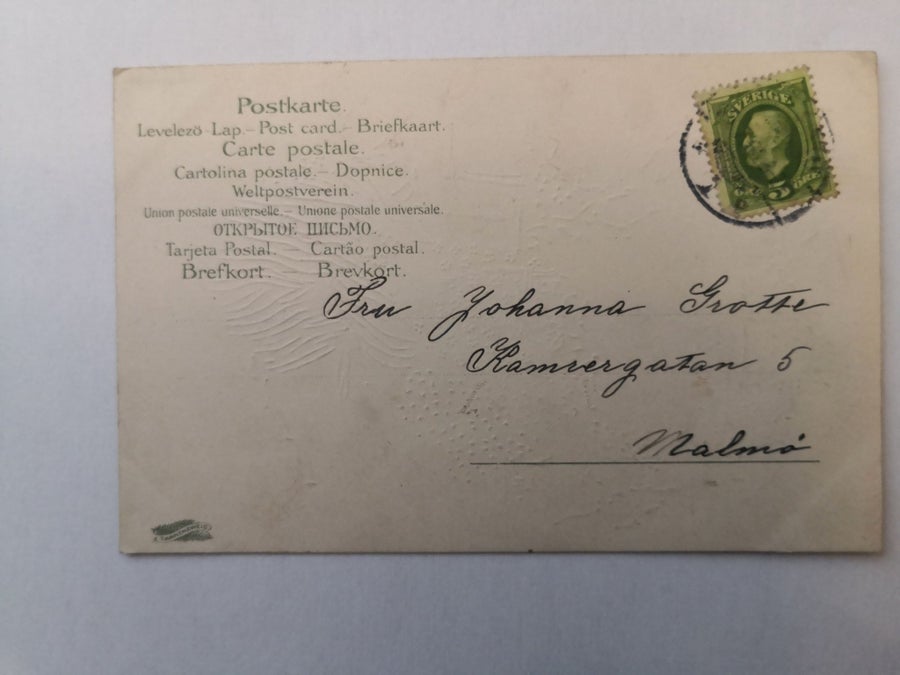 Postkarte.
Levelező-Lap.– Post card.– Briefkaart.
Carte postale.
Cartolina postale.– Dopnice.
Weltpostverein.
Union postale universelle.– Unione postale universale.
ОТКРЫТОЕ ПИСЬМО.
Tarjeta Postal. – Cartão postal.
Brefkort. – Brevkort.
SVERIGE
5
Fru Johanna Grotte
Kamrergatan 5
Malmö